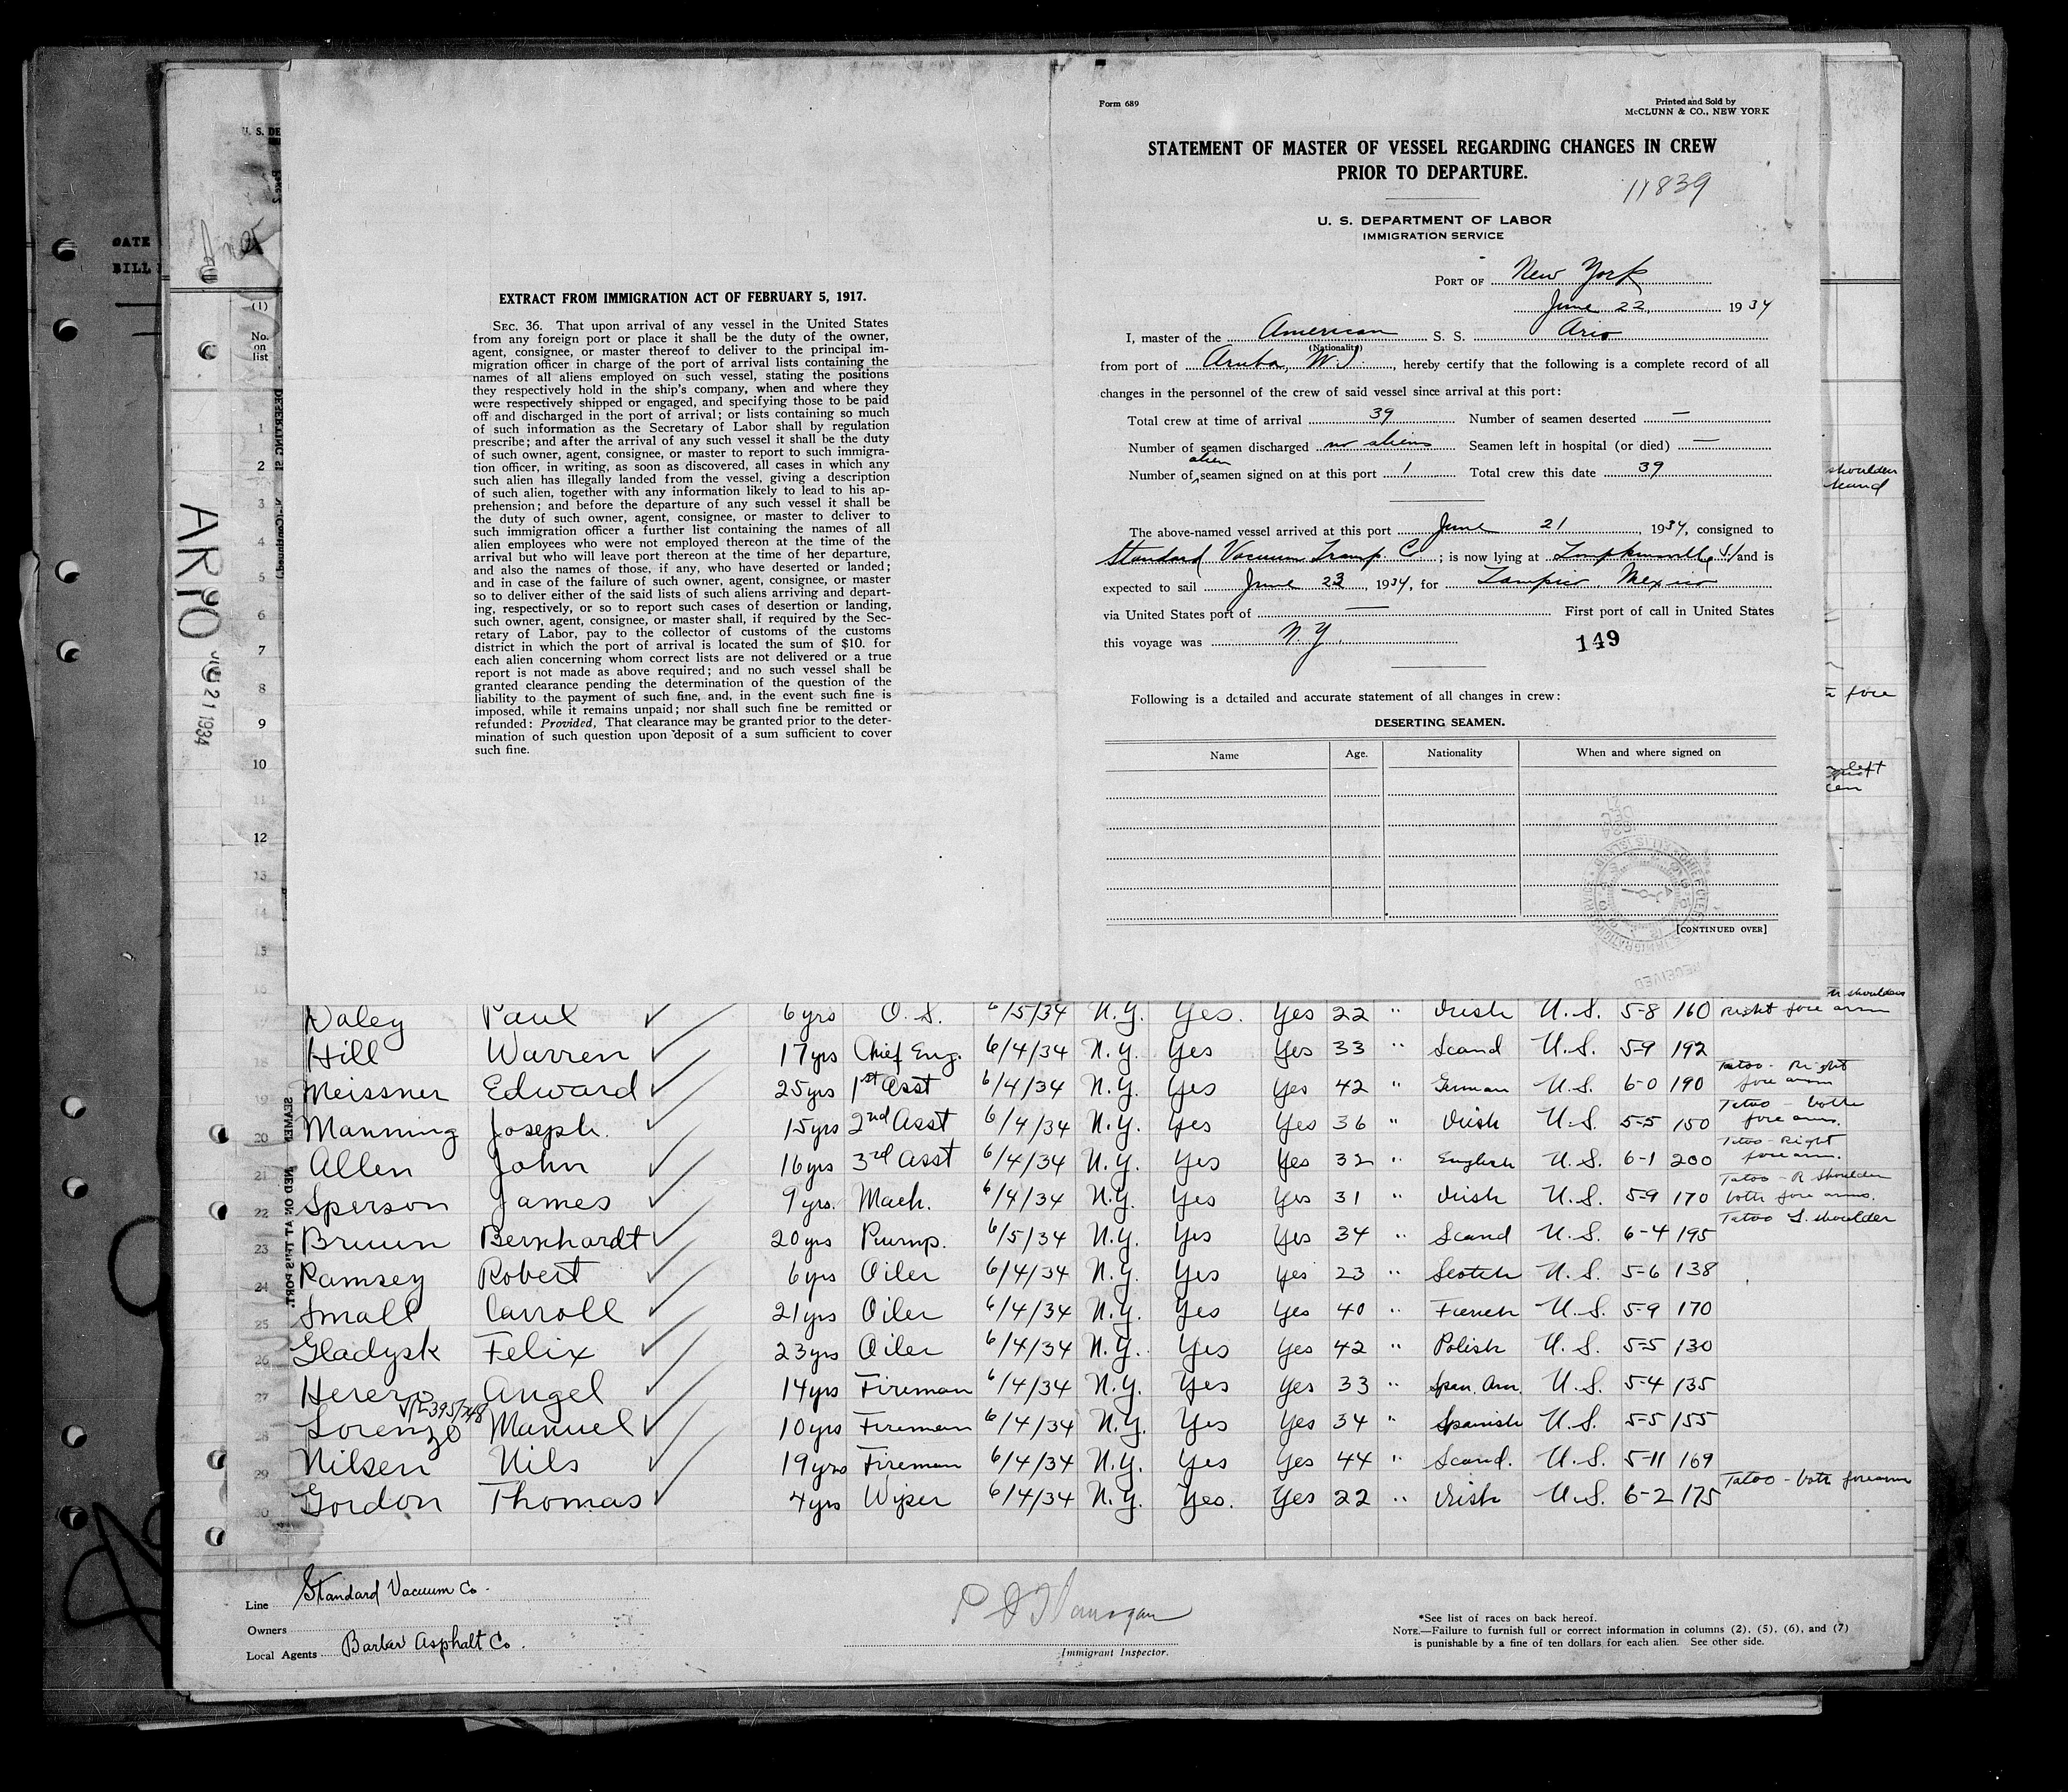 Form 689
Printed and Sold by
McCLUNN & CO., NEW YORK
STATEMENT OF MASTER OF VESSEL REGARDING CHANGES IN CREW
PRIOR TO DEPARTURE.
11839
U. S. DEPARTMENT OF LABOR
IMMIGRATION SERVICE
PORT OF New York
June 22, 1934
I, master of the American S. S. Ario
(Nationality)
from port of Aruba, W.I., hereby certify that the following is a complete record of all
changes in the personnel of the crew of said vessel since arrival at this port:
Total crew at time of arrival 39 Number of seamen deserted —
Number of seamen discharged no aliens Seamen left in hospital (or died) —
alien
Number of seamen signed on at this port 1 Total crew this date 39
The above-named vessel arrived at this port June 21 1934, consigned to
Standard Vacuum Transp. Co ; is now lying at Tompkinsville, S/I and is
expected to sail June 23, 1934, for Tampico, Mexico
via United States port of — First port of call in United States
this voyage was N.Y.
149
Following is a detailed and accurate statement of all changes in crew:
DESERTING SEAMEN.
Name Age. Nationality When and where signed on
[CONTINUED OVER]
EXTRACT FROM IMMIGRATION ACT OF FEBRUARY 5, 1917.
SEC. 36. That upon arrival of any vessel in the United States
from any foreign port or place it shall be the duty of the owner,
agent, consignee, or master thereof to deliver to the principal im-
migration officer in charge of the port of arrival lists containing the
names of all aliens employed on such vessel, stating the positions
they respectively hold in the ship's company, when and where they
were respectively shipped or engaged, and specifying those to be paid
off and discharged in the port of arrival; or lists containing so much
of such information as the Secretary of Labor shall by regulation
prescribe; and after the arrival of any such vessel it shall be the duty
of such owner, agent, consignee, or master to report to such immigra-
tion officer, in writing, as soon as discovered, all cases in which any
such alien has illegally landed from the vessel, giving a description
of such alien, together with any information likely to lead to his ap-
prehension; and before the departure of any such vessel it shall be
the duty of such owner, agent, consignee, or master to deliver to
such immigration officer a further list containing the names of all
alien employees who were not employed thereon at the time of the
arrival but who will leave port thereon at the time of her departure,
and also the names of those, if any, who have deserted or landed;
and in case of the failure of such owner, agent, consignee, or master
so to deliver either of the said lists of such aliens arriving and depart-
ing, respectively, or so to report such cases of desertion or landing,
such owner, agent, consignee, or master shall, if required by the Sec-
retary of Labor, pay to the collector of customs of the customs
district in which the port of arrival is located the sum of $10. for
each alien concerning whom correct lists are not delivered or a true
report is not made as above required; and no such vessel shall be
granted clearance pending the determination of the question of the
liability to the payment of such fine, and, in the event such fine is
imposed, while it remains unpaid; nor shall such fine be remitted or
refunded: Provided, That clearance may be granted prior to the deter-
mination of such question upon deposit of a sum sufficient to cover
such fine.
DATE
BILL
U. S. DE
(1)
No.
on
list
1
2
3
4
5
6
7
8
9
10
11
12
13
14
15
ARIO
21 1934
shoulder
fore
left
R shoulders
Daley Paul 6yrs O.S. 6/5/34 N.Y. Yes. Yes 22 " Irish U.S. 5-8 160 Right fore arm
18 Hill Warren 17yrs Chief Eng. 6/4/34 N.Y. Yes Yes 33 " Scand U.S. 5-9 192
19 Meissner Edward 25yrs 1st Asst 6/4/34 N.Y. Yes Yes 42 " German U.S. 6-0 190 Tatoo - Right fore arm
20 Manning Joseph. 15yrs 2nd Asst 6/4/34 N.Y. Yes Yes 36 " Irish U.S. 5-5 150 Tatoo - both fore arms.
21 Allen John 16yrs 3rd Asst 6/4/34 N.Y. Yes Yes 32 " English U.S. 6-1 200 Tatoo - Right forearm.
22 Sperson James 9yrs. Mach. 6/4/34 N.Y. Yes Yes 31 " Irish U.S. 5-9 170 Tatoo - R shoulder both fore arms.
23 Bruun Bernhardt 20yrs Pump. 6/5/34 N.Y. Yes Yes 34 " Scand U.S. 6-4 195 Tatoo L. shoulder
24 Ramsey Robert 6yrs Oiler 6/4/34 N.Y. Yes Yes 23 " Scotch U.S. 5-6 138
25 Small Carroll 21yrs Oiler 6/4/34 N.Y. Yes Yes 40 " French U.S. 5-9 170
26 Gladysk Felix 23yrs Oiler 6/4/34 N.Y. Yes Yes 42 " Polish U.S. 5-5 130
27 Herero Angel 14yrs Fireman 6/4/34 N.Y. Yes Yes 33 " Span. Am. U.S. 5-4 135
28 Lorenzo Manuel 10yrs Fireman 6/4/34 N.Y. Yes Yes 34 " Spanish U.S. 5-5 155
29 Nilsen Nils 19yrs Fireman 6/4/34 N.Y. Yes Yes 44 " Scand. U.S. 5-11 169
30 Gordon Thomas 4yrs Wiper 6/4/34 N.Y. Yes. Yes 22 " Irish U.S. 6-2 175 Tatoo - both forearms
Line Standard Vacuum Co.
Owners
Local Agents Barber Asphalt Co.
Immigrant Inspector.
*See list of races on back hereof.
NOTE.—Failure to furnish full or correct information in columns (2), (5), (6), and (7)
is punishable by a fine of ten dollars for each alien. See other side.